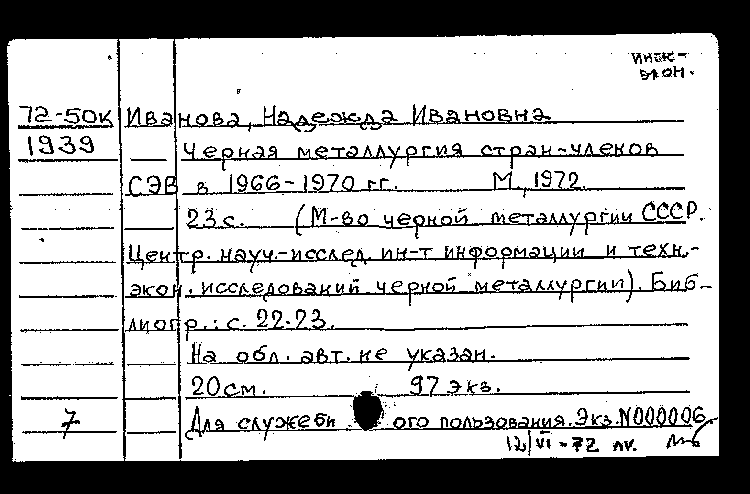 эл.он.
72-50к Иванова, Надежда Ивановна
1939 Черная металлургия стран-членов
СЭВ в 1966-1970 гг. М., 1972.
23 с. (М-во черной металлургии СССР.
Центр. науч.-исслед. ин-т информации и техн.-
экон. исследований черной металлургии). Биб-
лиогр.: с. 22-23.
На обл. авт. не указан.
20 см. 97 экз.
7 Для служебн ого пользования. Экз. N000006
12/VI-72